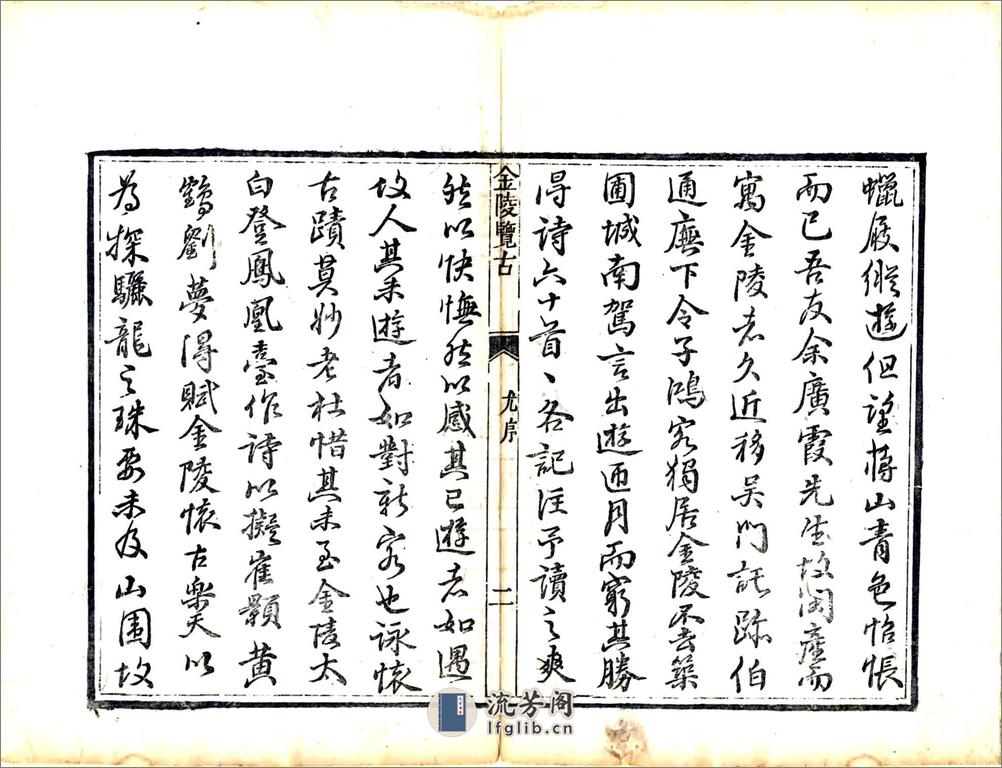 蠟屐縱遊但望蔣山青色怊悵
而已吾友余廣霞先生故閩產而
寓金陵者久近移吳門託跡伯
通廡下令子鴻客獨居金陵不去築
圃城南駕言出遊匝月而窮其勝
得詩六十首〻各記注予讀之爽
金陵覽古
尤序
二
然以快憮然以感其已遊者如遇
故人其未遊者如對新客也詠懷
古蹟莫妙老杜惜其未至金陵太
白登鳳凰臺作詩以擬崔顥黃
鶴劉夢得賦金陵懷古樂天以
為探驪龍之珠要未及山圍故
流芳阁
lfglib.cn